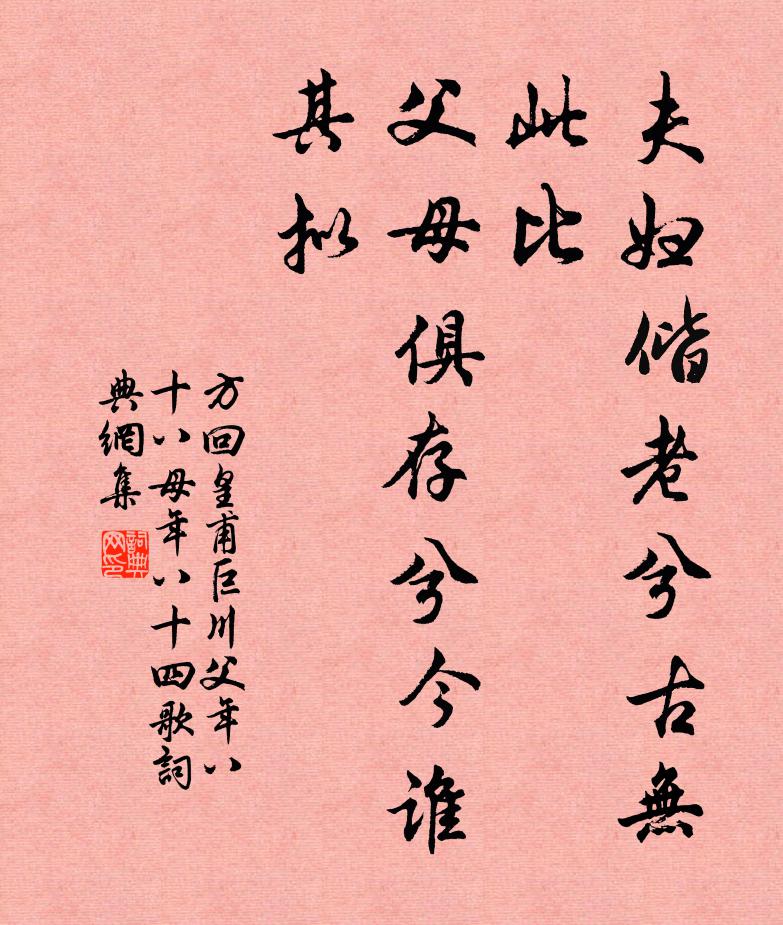 夫婦偕老兮古無
此比
父母俱存兮今誰
其擬
方回皇甫巨川父年八
十八母年八十四歌詞
典網集
詞典
网印